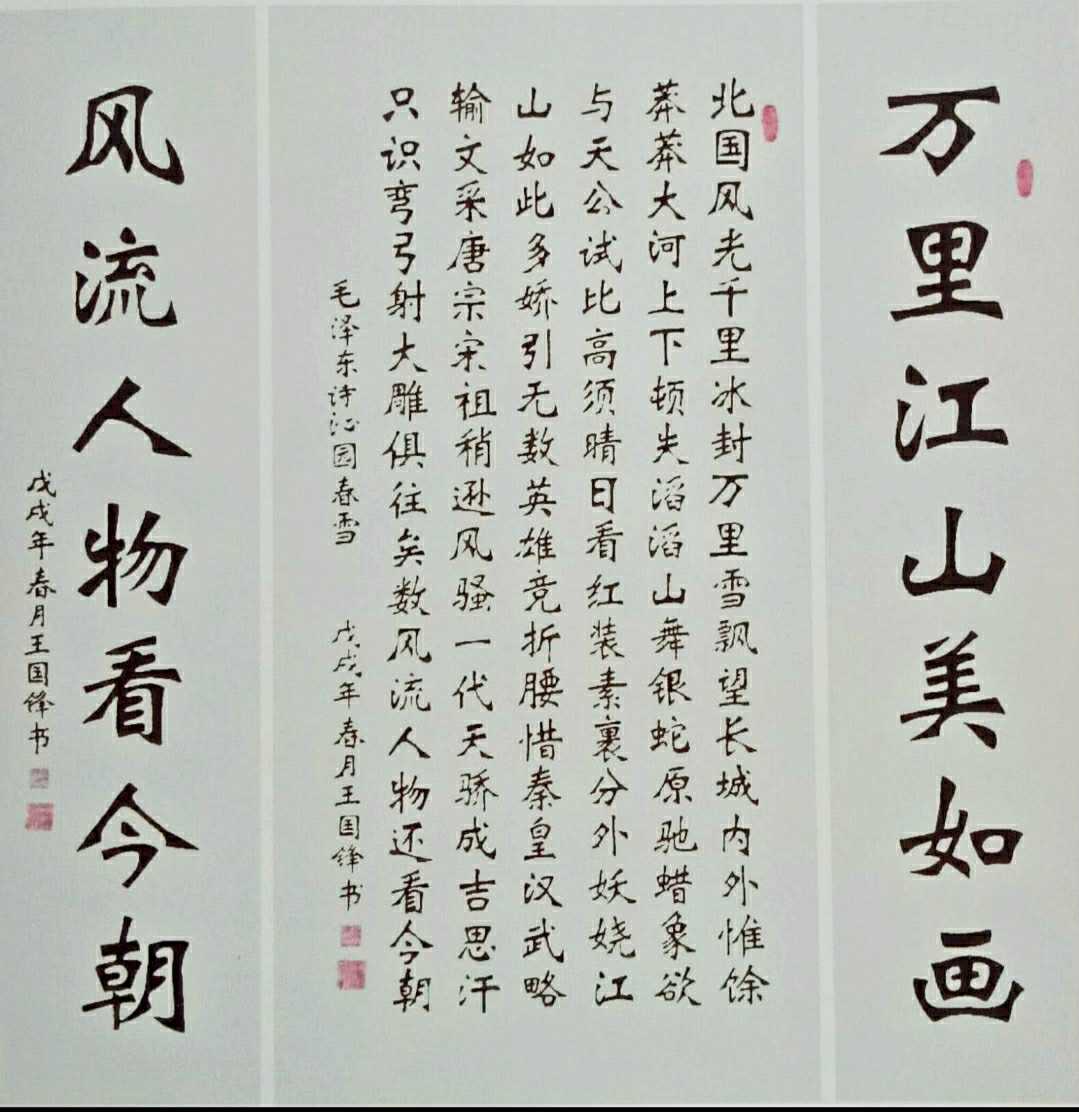 万里江山美如画
北国风光千里冰封万里雪飘望长城内外惟馀
莽莽大河上下顿失滔滔山舞银蛇原驰蜡象欲
与天公试比高须晴日看红装素裹分外妖娆江
山如此多娇引无数英雄竞折腰惜秦皇汉武略
输文采唐宗宋祖稍逊风骚一代天骄成吉思汗
只识弯弓射大雕俱往矣数风流人物还看今朝
毛泽东诗沁园春雪 戊戌年春月王国锋书
风流人物看今朝
戊戌年春月王国锋书